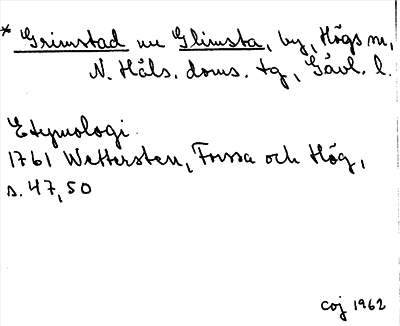 * Grimstad nu Glimsta, by, Högs sn,
N. Häls. doms. tg, Gävl. l.
Etymologi.
1761 Wettersten, Forssa och Hög,
s. 47, 50
COJ 1962